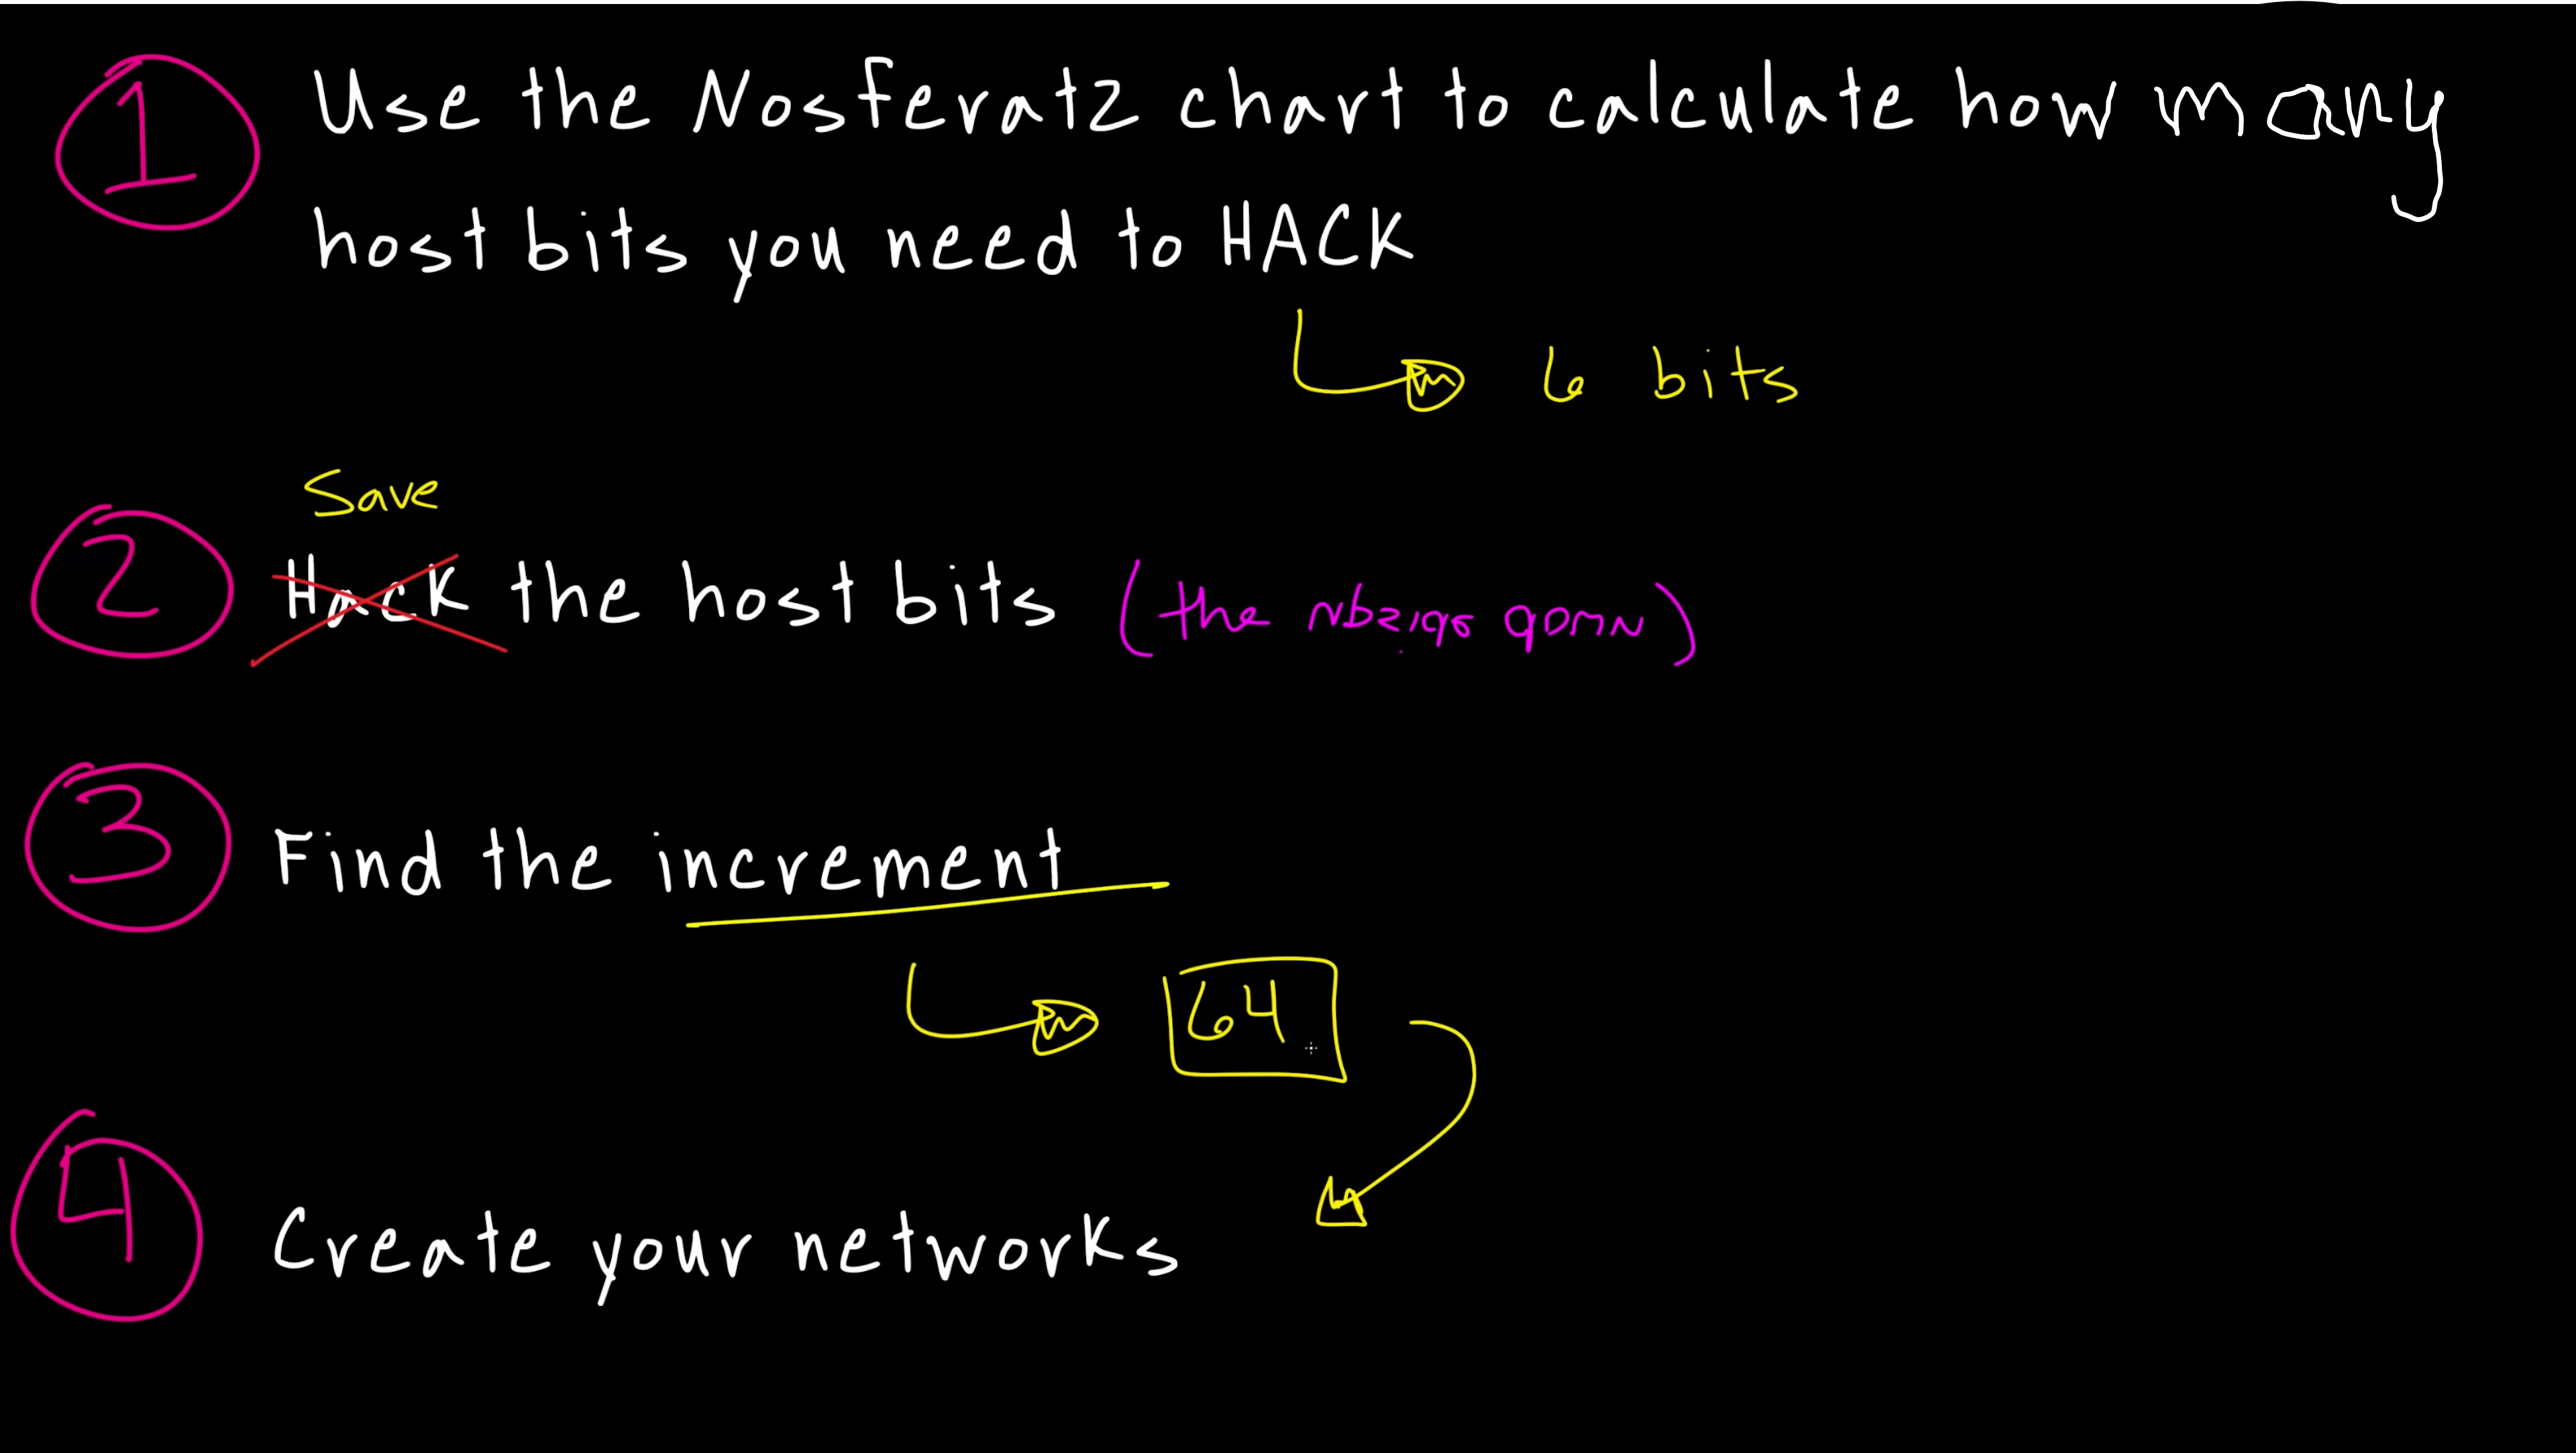 1 Use the Nosferatz chart to calculate how many
host bits you need to HACK
6 bits
Save
2 Hack the host bits (the
3 Find the increment
64
4 Create your networks